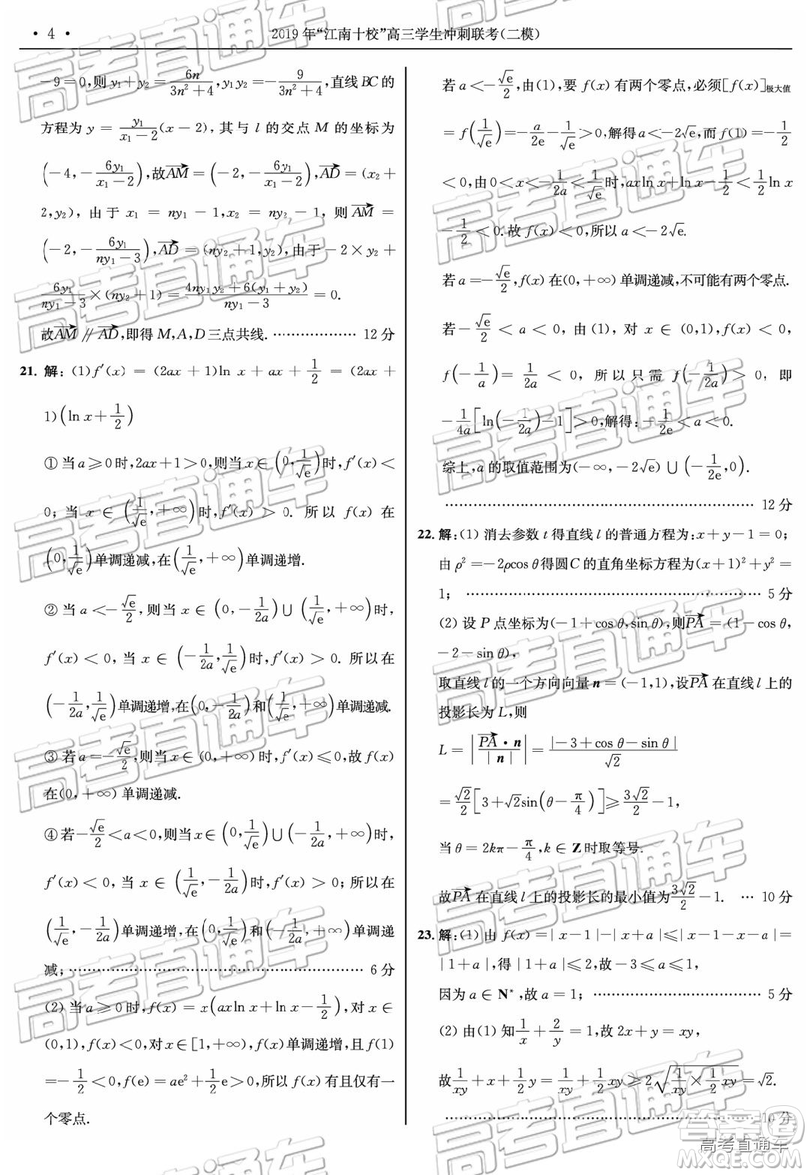 · 4 ·
2019年“江南十校”高三学生冲刺联考(二模)
-9=0,则 y₁+y₂=6n/(3n²+4),y₁y₂=-9/(3n²+4),直线BC的
方程为 y=y₁/(x₁-2)(x-2),其与 l 的交点 M 的坐标为
(-4,-6y₁/(x₁-2)),故AM→=(-2,-6y₁/(x₁-2)),AD→=(x₂+
2,y₂),由于 x₁=ny₁-1,x₂=ny₂-1,则 AM→=
(-2,-6y₁/(ny₁-3)),AD→=(ny₂+1,y₂),由于-2×y₂+
6y₁/(ny₁-3)×(ny₂+1)=(4ny₁y₂+6(y₁+y₂))/(ny₁-3)=0.
故AM→∥AD→,即得 M,A,D 三点共线. ……………… 12分
21. 解:(1)f′(x)=(2ax+1)ln x+ax+1/2=(2ax+
1)(ln x+1/2)
①当 a≥0时,2ax+1>0,则当 x∈(0,1/√e)时,f′(x)<
0;当 x∈(1/√e,+∞)时,f′(x)>0. 所以 f(x)在
(0,1/√e)单调递减,在(1/√e,+∞)单调递增.
②当 a<-√e/2,则当 x∈(0,-1/2a)∪(1/√e,+∞)时,
f′(x)<0,当 x∈(-1/2a,1/√e)时,f′(x)>0. 所以在
(-1/2a,1/√e)单调递增,在(0,-1/2a)和(1/√e,+∞)单调递减.
③若 a=-√e/2,则当 x∈(0,+∞)时,f′(x)≤0,故 f(x)
在(0,+∞)单调递减.
④若-√e/2<a<0,则当x∈(0,1/√e)∪(-1/2a,+∞)时,
f′(x)<0,当 x∈(1/√e,-1/2a)时,f′(x)>0. 所以在
(1/√e,-1/2a)单调递增,在(0,1/√e)和(-1/2a,+∞)单调递
减;……………………………………… 6分
(2)当a≥0时,f(x)=x(axln x+ln x-1/2),当 x∈
(0,1),f(x)<0,当x∈[1,+∞),f(x)单调递增,而f(1)
=-1/2<0,f(e)=ae²+1/2e>0,所以f(x)有且只有一
个零点.
若 a<-√e/2,由(1),要 f(x)有两个零点,必须[f(x)]极大值
=f(1/√e)=-a/2e-1/√e>0,解得a<-2√e,而f(1)=-1/2
<0,由0<x<-1/2a<1/√e时,axln x+ln x-1/2<1/2ln x
-1/2<0.故f(x)<0,所以 a<-2√e.
若 a=-√e/2,f(x)在(0,+∞)单调递减,不可能有两个零点.
若-√e/2<a<0,由(1),对 x∈(0,1),f(x)<0,
f(-1/a)=1/2a<0,所以只需 f(-1/2a)>0,即
-1/4a[ln(-1/2a)-1]>0,解得:-1/2e<a<0.
综上,a的取值范围为(-∞,-2√e)∪(-1/2e,0).
……………………………………… 12分
22. 解:(1)消去参数 t 得直线 l 的普通方程为:x+y-1=0;
由 ρ²=-2ρcos θ得圆C的直角坐标方程为(x+1)²+y²=
1;……………………………………… 5分
(2)设 P 点坐标为(-1+cos θ,sin θ),则PA→=(1-cos θ,
-2-sin θ),
取直线l的一个方向向量 n=(-1,1),设PA→在直线l上的
投影长为 L,则
L=|PA→·n/|n||=|-3+cos θ-sin θ|/√2
=√2/2[3+√2sin(θ-π/4)]≥3√2/2-1,
当θ=2kπ-π/4,k∈Z时取等号.
故PA→在直线l上的投影长的最小值为3√2/2-1. … 10分
23. 解:(1)由 f(x)=|x-1|-|x+a|≤|x-1-x-a|=
|1+a|,所以|1+a|=2,
因为 a∈N*,故 a=1;……………………… 5分
(2)由(1)知1/x+2/y=1,故 2x+y=xy,
故1/xy+x+1/2y=1/xy+1/2xy≥2√(1/xy×1/2xy)=√2.
……………………………………… 10分
高考直通车
答案圈
高考直通车